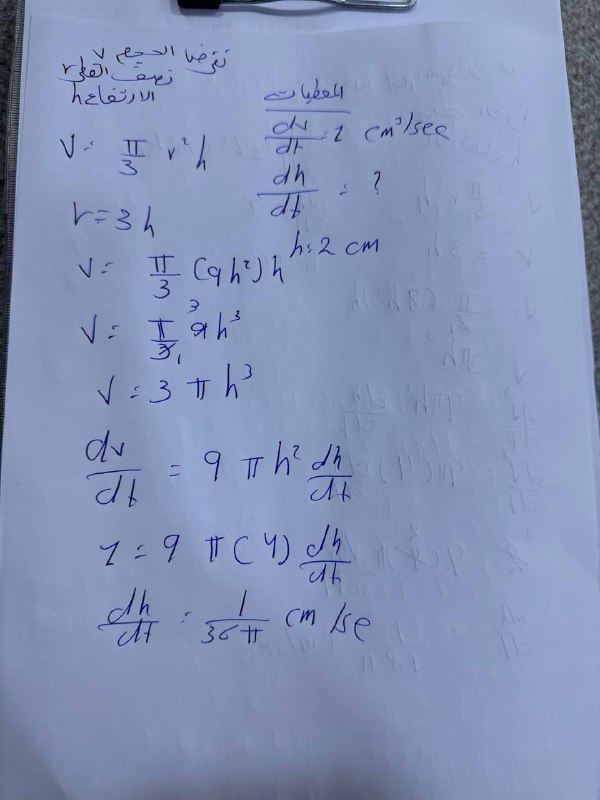 نفرض الحجم v
نصف القطر r
الارتفاع h
المعطيات
dv/dt = 1 cm³/sec
dh/dt = ?
h = 2 cm
V = π/3 r² h
r = 3h
V = π/3 (9h²) h
V = π/3 9h³
V = 3πh³
dv/dt = 9πh² dh/dt
1 = 9π(4) dh/dt
dh/dt = 1/36π cm/se